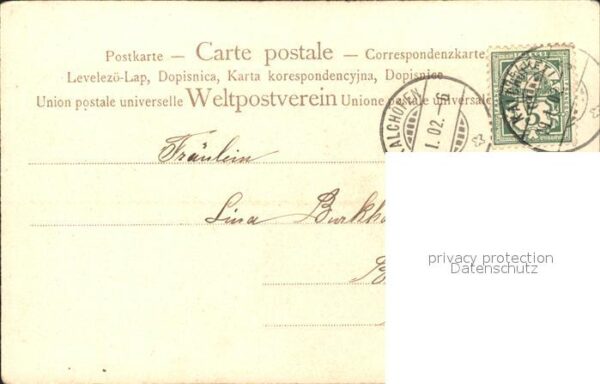 Postkarte — Carte postale — Correspondenzkarte
Levelező-Lap, Dopisnica, Karta korespondencyjna, Dopisnice
Union postale universelle Weltpostverein Unione postale universale
ALCHOFEN
1.02.
5
Fräulein
Lina Burkh
B
privacy protection
Datenschutz